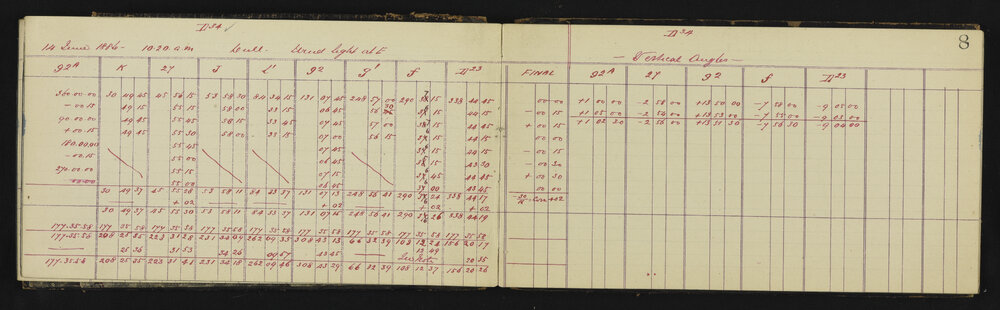 D34
14 June 1886 - 10.20 a.m Dull. Cloud light at E
g2A K 27 J L' g2 g' f D23
360.00.00 30 49 45 45 56 15 53 58 30 84 34 15 131 07 45 248 57 00 290 15 338 44 45
- 00 15 49 15 55 15 58 00 33 15 06 45 56 15 44 15
90 00.00 49 45 55 45 58 15 33 45 07 45 57 00 15 44 45
+ 00.15 49 45 55 30 58 00 33 15 07 00 56 15 15 44 15
180.00.00 55 45 07 45 15 44 45
- 00.15 55 00 06 45 15 43 30
270.00.00 55 15 07 15 45 44 45
55 00 06 45 00 43 45
30 49 37 45 55 28 53 58 11 84 33 37 131 07 13 248 56 41 290 24 338 44 17
+ 02 + 02 + 02
30 49 37 45 55 30 53 58 11 84 33 37 131 07 15 248 56 41 290 26 338 44 19
177.35.58 177 35 58 177 35 58 177 35 58 177 35 58 177 35 58 177 35 58 177 35 58 177 35 58
177.35.56 208 25 35 223 31 28 231 34 09 262 09 35 308 43 13 66 32 39 108 12 24 156 20 17
25 35 31 53 34 26 09 57 13 45 12 49 20 35
See Note
177.35.56 208 25 35 223 31 41 231 34 18 262 09 46 308 43 29 66 32 39 108 12 37 156 20 26
D34
8
- Vertical Angles -
FINAL g2A 27 g2 f D23
00 00 +1 00 00 -2 58 00 +13 50 00 -7 58 00 -9 05 00
- 00 15 +1 05 00 -2 54 00 +13 53 00 -7 55 00 -9 03 00
+ 00 15 +1 02 30 -2 56 00 +13 51 30 -7 56 30 -9 04 00
00 00
- 00 15
- 00 30
+ 00 30
00 00
-30/15 Corr +02